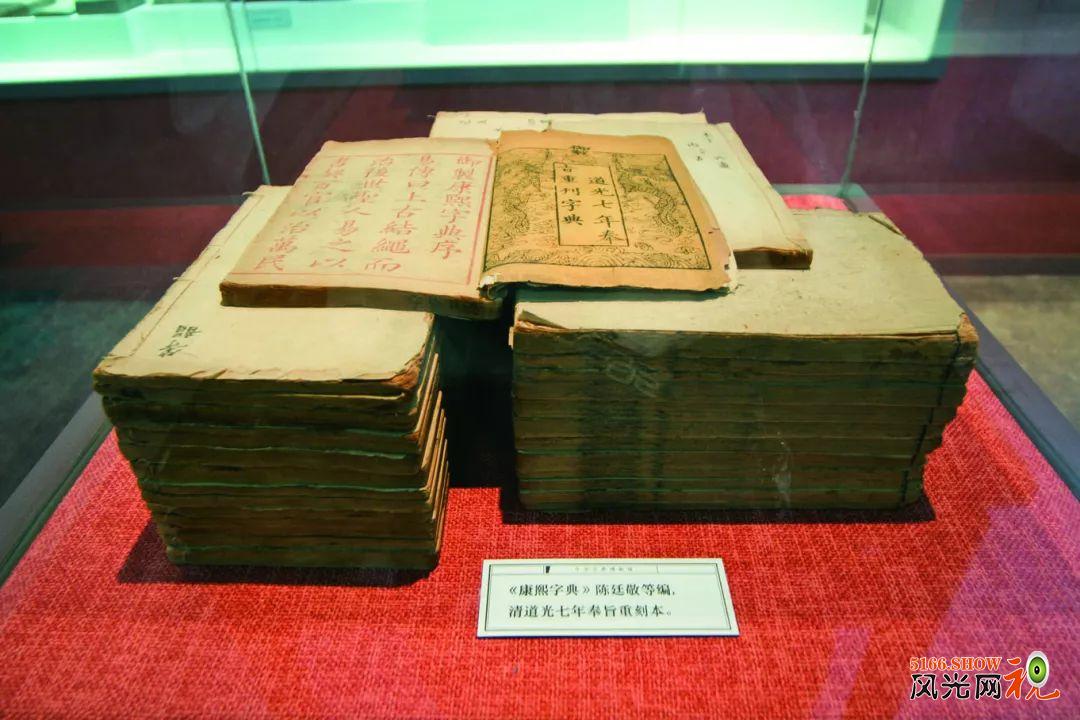 御製康熙字典序
易傳曰上古結繩而
治後世聖人易之以
書契百官以治萬民
道光七年奉
旨重刊字典
《康熙字典》陈廷敬等编,
清道光七年奉旨重刻本。
5166.SHOW
风光网视